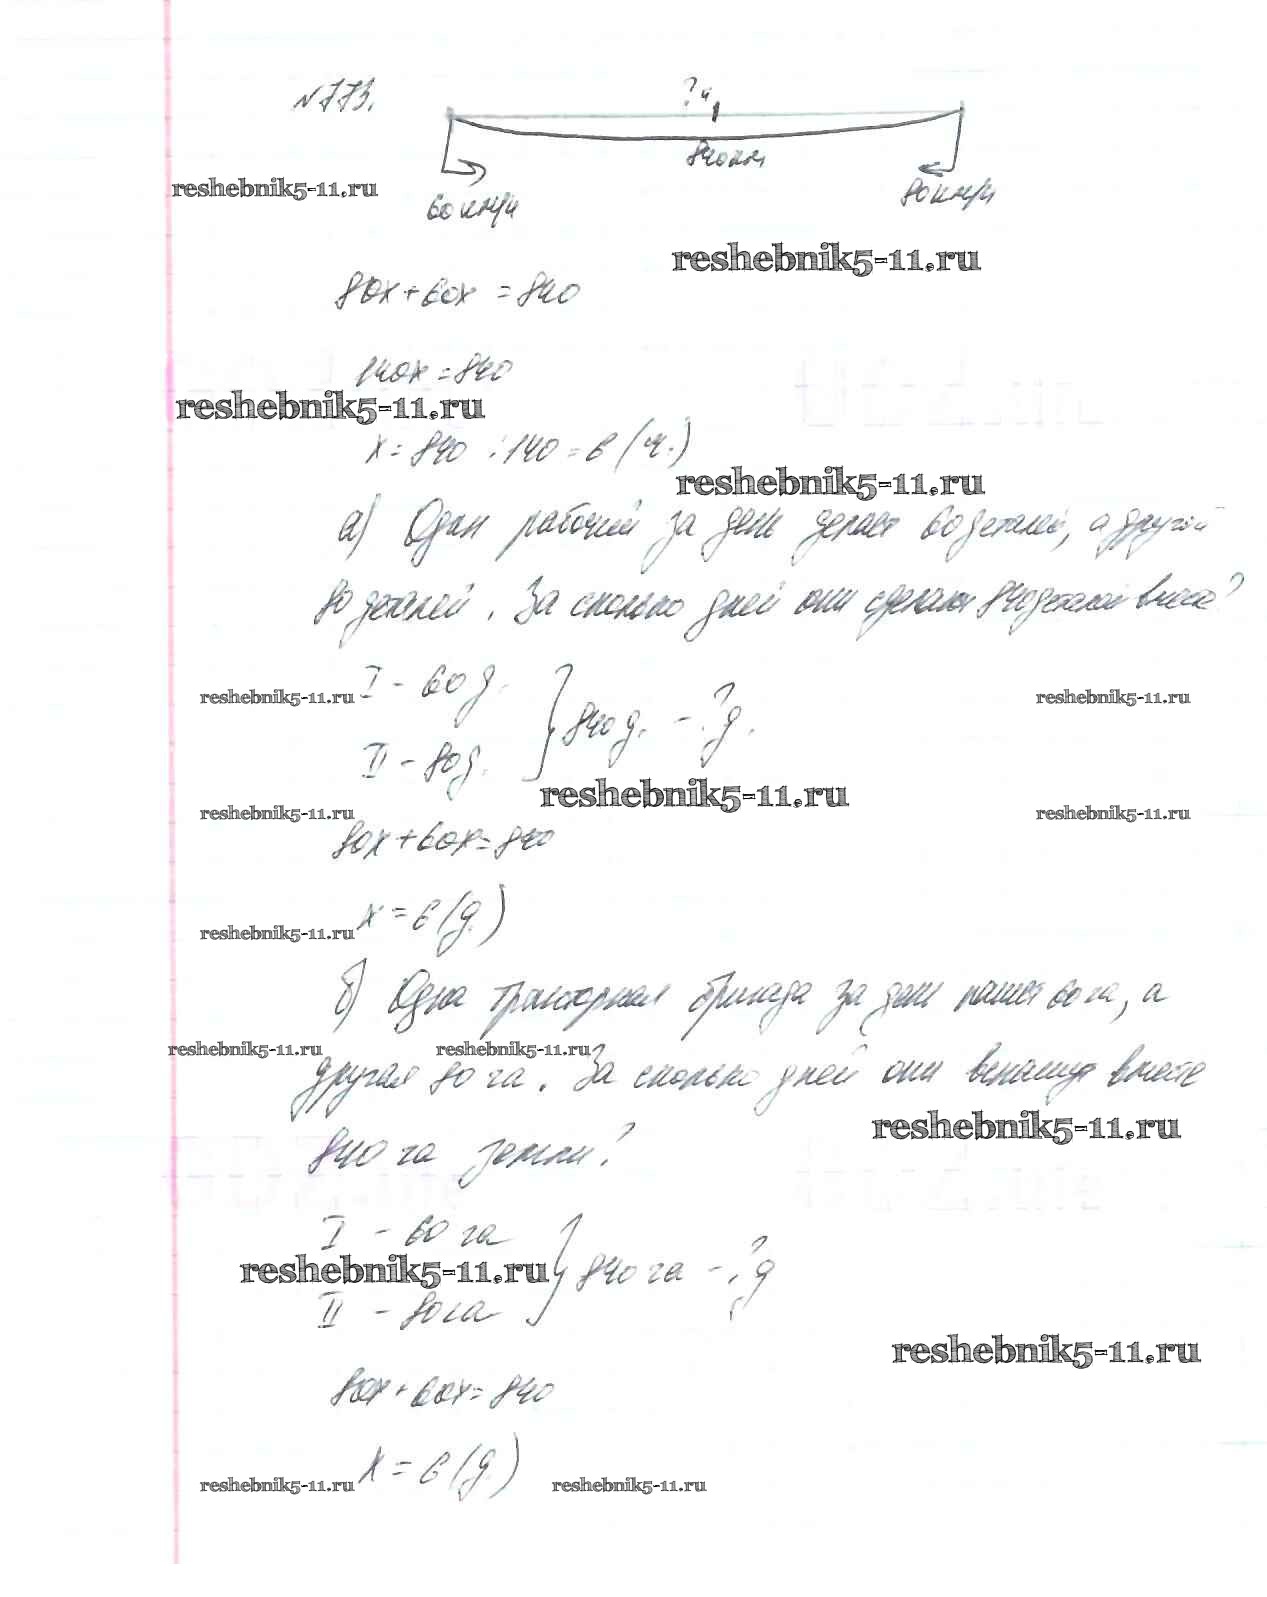 №773.
? ч
840 км
reshebnik5-11.ru
60 км/ч
80 км/ч
reshebnik5-11.ru
80x + 60x = 840
140x = 840
reshebnik5-11.ru
x = 840 : 140 = 6 (ч.)
reshebnik5-11.ru
а) Один рабочий за день делает 60 деталей, а другой
80 деталей. За сколько дней они сделают 840 деталей вместе?
reshebnik5-11.ru I - 60 д. reshebnik5-11.ru
} 840 д. - ? д.
II - 80 д.
reshebnik5-11.ru
reshebnik5-11.ru reshebnik5-11.ru
80x + 60x = 840
x = 6 (д.)
reshebnik5-11.ru
б) Одна тракторная бригада за день пашет 60 га, а
reshebnik5-11.ru reshebnik5-11.ru
другая 80 га. За сколько дней они вспашут вместе
reshebnik5-11.ru
840 га земли?
I - 60 га
reshebnik5-11.ru } 840 га - ? д
II - 80 га
reshebnik5-11.ru
80x + 60x = 840
x = 6 (д.)
reshebnik5-11.ru reshebnik5-11.ru